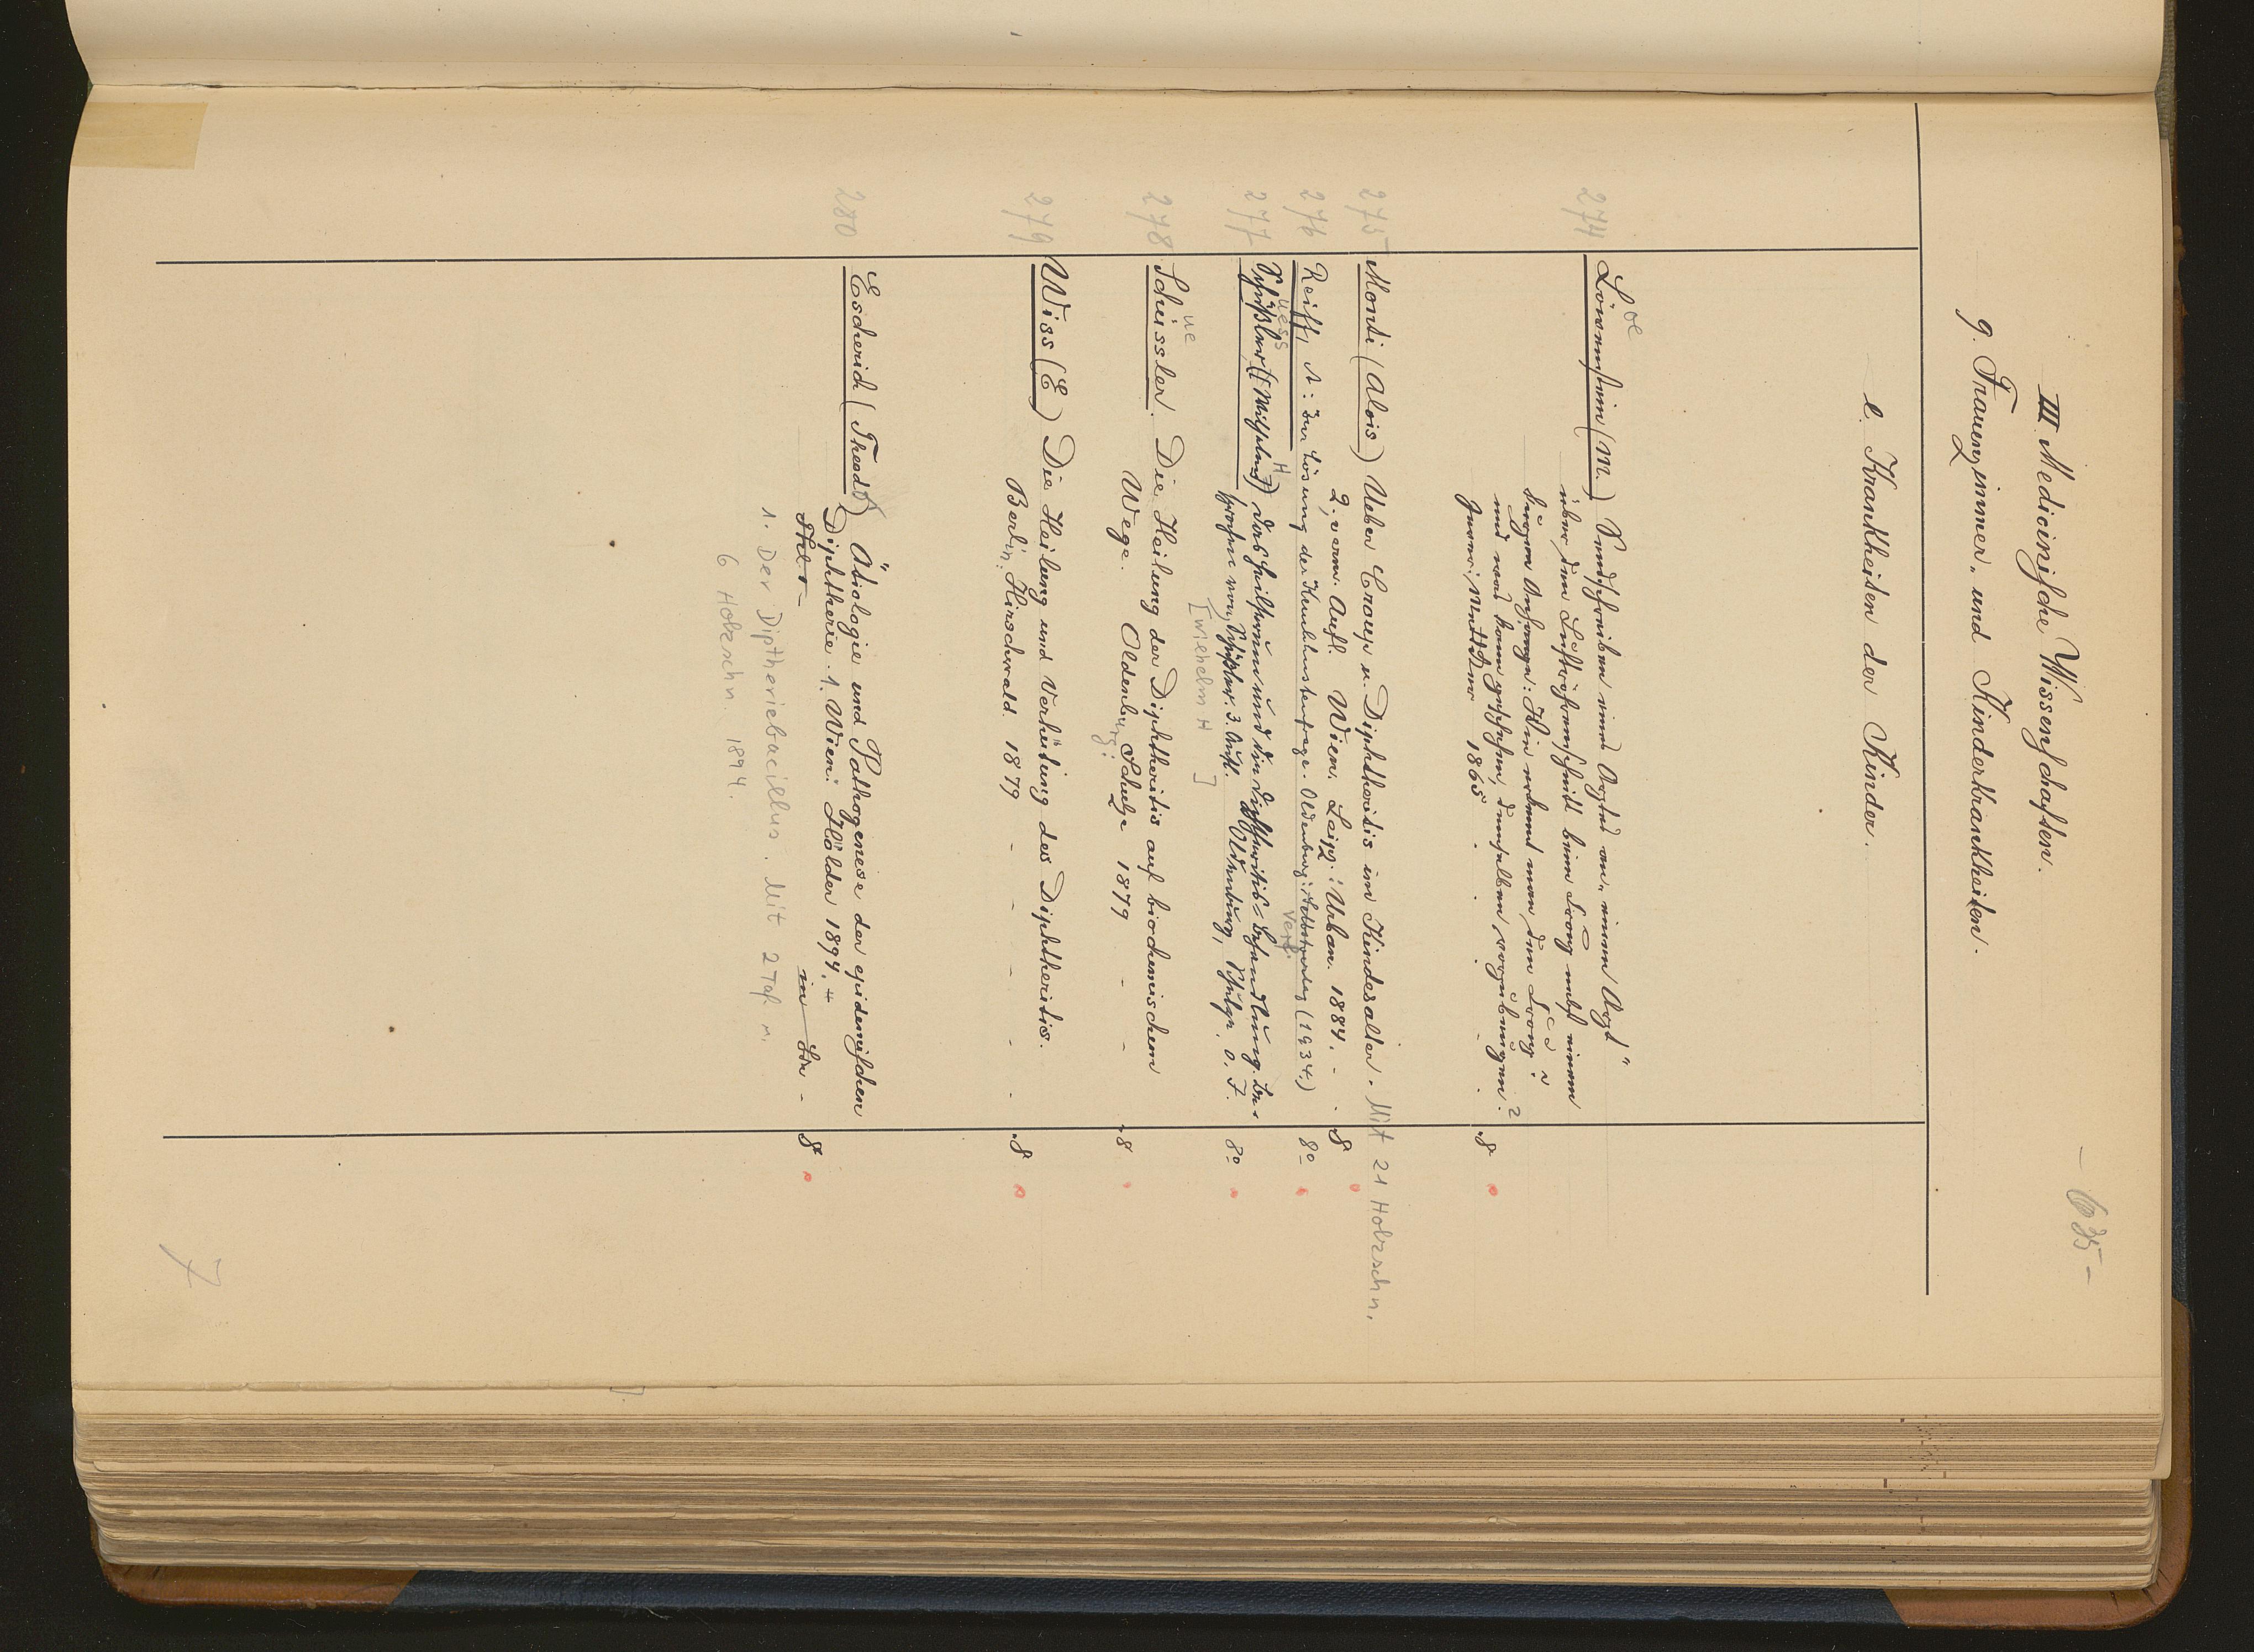 - 635 -
III Medicinische Wissenschaften.
g. Frauenzimmer- und Kinderkrankheiten.
l. Krankheiten der Kinder.
oe
274 Löwenstein (M.) Sendschreiben eines Arztes an „einen Arzt"
über den Luftröhrenschnitt beim Croup nebst einem
Anhange: Wie erkennt man den Croup?
und was kann geschehen, demselben vorzubeugen?
1865 8
275 Monti (Alois) Ueber Croup u. Diphtheritis im Kindesalter. Mit 21 Holzschn.
2. verm. Aufl. Wien. Leipz.: Urban. 1884. 8
276 Reiff, A: Zur Lösung der Krankheitsfrage. Oldenburg: Selbstverlag (1934.) 8o
Verf.
uess H
277 Schüßler (Wilhelm) Das Heilserum und die Diphtheritis-Behandlung. Be-
sprochen von Schüßler. 3. Aufl. Oldenburg, Schulze, o. J. 8o
[Wilhelm H ]
ue
278 Schüssler. Die Heilung der Diphtheritis auf biochemischem
Wege. Oldenburg: Schulze 1879 8
279 Wiss (E) Die Heilung und Verhütung des Diphtheritis.
Berlin: Hirschwald. 1879 8
280 Escherich (Theod) Ätiologie und Pathogenese der epidemischen
Diphtherie. 1. Wien: Hölder 1894. 8
1. Der Diptheriebacillus. Mit 2 Taf. u.
6 Holzschn. 1894.
7